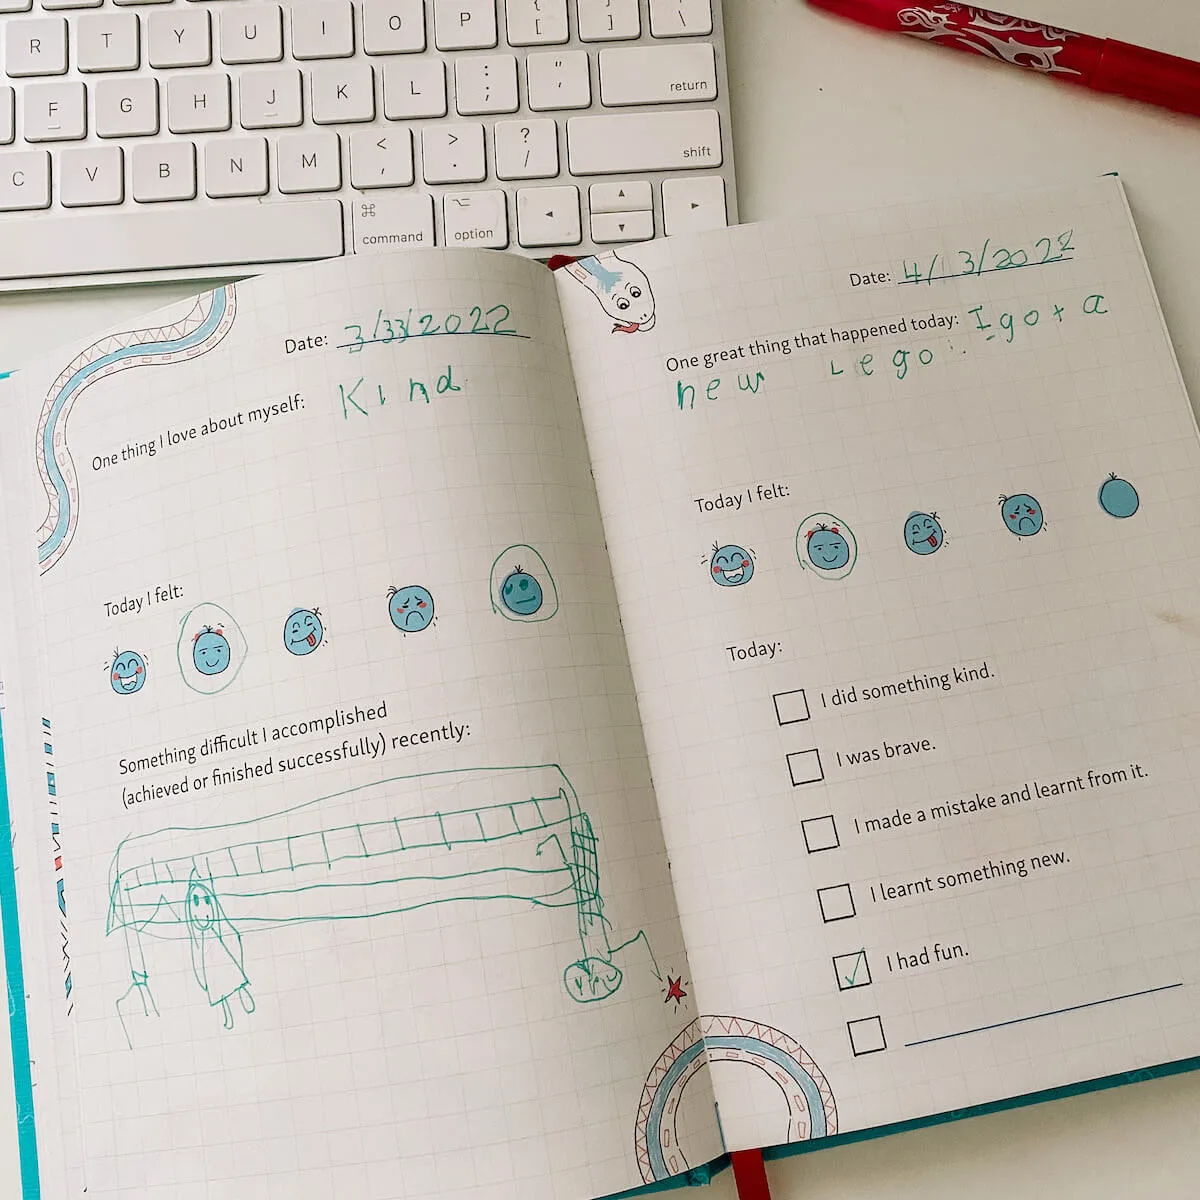 R T Y U I O P { [ } ] \
F G H J K L : ; " ' return
C V B N M < , > . ? / shift
⌘ command ⌥ option ◄ ▲ ▼ ►
Date: 3/33/2022
One thing I love about myself: Kind
Today I felt:
Something difficult I accomplished
(achieved or finished successfully) recently:
Date: 4/13/2022
One great thing that happened today: I got a
new Lego
Today I felt:
Today:
I did something kind.
I was brave.
I made a mistake and learnt from it.
I learnt something new.
I had fun.